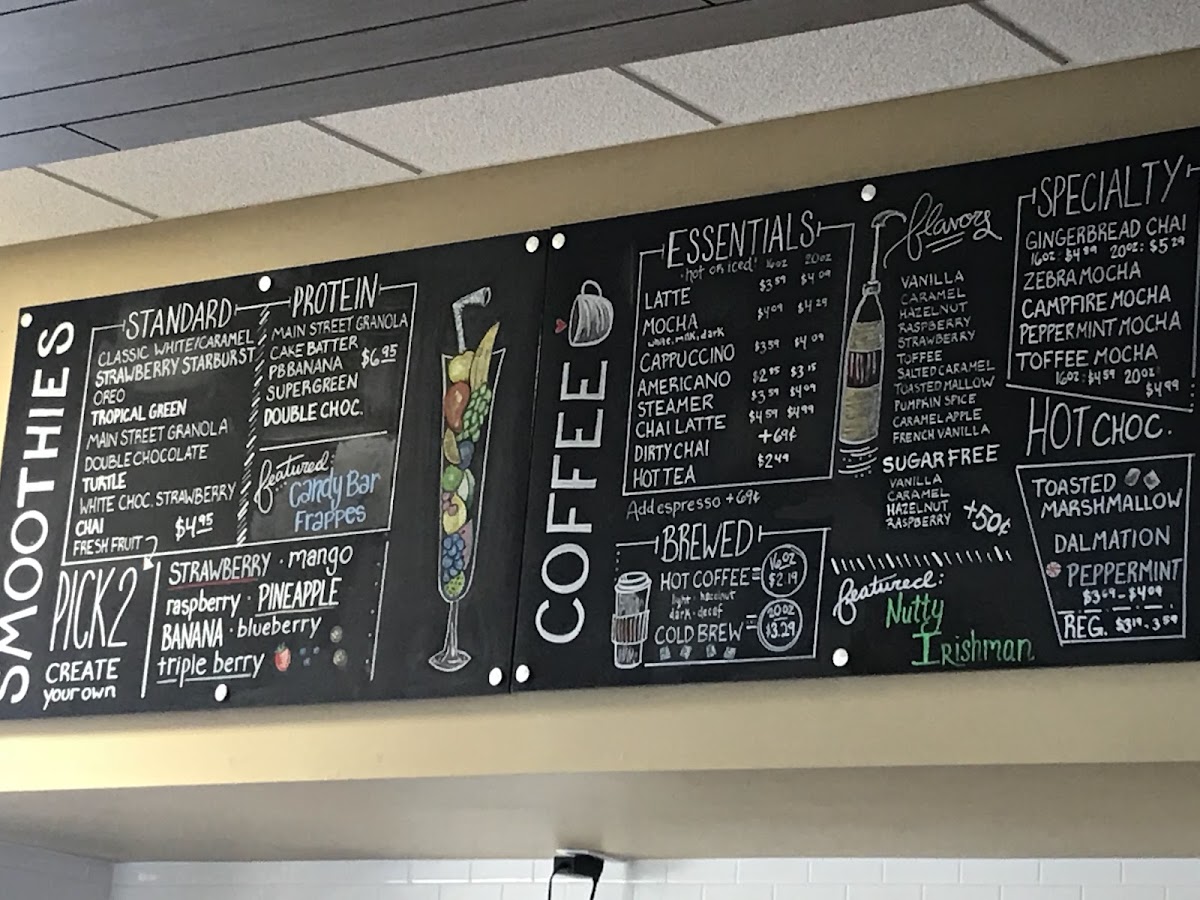 SMOOTHIES
STANDARD
CLASSIC WHITE/CARAMEL
STRAWBERRY STARBURST
OREO
TROPICAL GREEN
MAIN STREET GRANOLA
DOUBLE CHOCOLATE
TURTLE
WHITE CHOC. STRAWBERRY
CHAI
$4.95
FRESH FRUIT
PROTEIN
MAIN STREET GRANOLA
CAKE BATTER
PB BANANA
$6.95
SUPERGREEN
DOUBLE CHOC.
featured:
Candy Bar
Frappes
PICK 2
CREATE
your own
STRAWBERRY · mango
raspberry · PINEAPPLE
BANANA · blueberry
triple berry
COFFEE
ESSENTIALS
·hot or iced· 16oz 20oz
LATTE $3.59 $4.09
MOCHA $4.09 $4.29
white, milk, dark
CAPPUCCINO $3.59 $4.09
AMERICANO $2.95 $3.15
STEAMER $3.59 $4.09
CHAI LATTE $4.59 $4.99
DIRTY CHAI +69¢
HOT TEA $2.49
Add espresso +69¢
BREWED
HOT COFFEE= 16oz $2.19
light · hazelnut
dark · decaf
COLD BREW = 20oz $3.29
flavors
VANILLA
CARAMEL
HAZELNUT
RASPBERRY
STRAWBERRY
TOFFEE
SALTED CARAMEL
TOASTED MALLOW
PUMPKIN SPICE
CARAMEL APPLE
FRENCH VANILLA
SUGAR FREE
VANILLA
CARAMEL
HAZELNUT
RASPBERRY
+50¢
featured:
Nutty
Irishman
SPECIALTY
GINGERBREAD CHAI
16oz: $4.89 20oz: $5.29
ZEBRA MOCHA
CAMPFIRE MOCHA
PEPPERMINT MOCHA
TOFFEE MOCHA
16oz: $4.59 20oz:
$4.99
HOT CHOC.
TOASTED
MARSHMALLOW
DALMATION
PEPPERMINT
$3.69 - $4.09
REG. $3.19 - 3.59